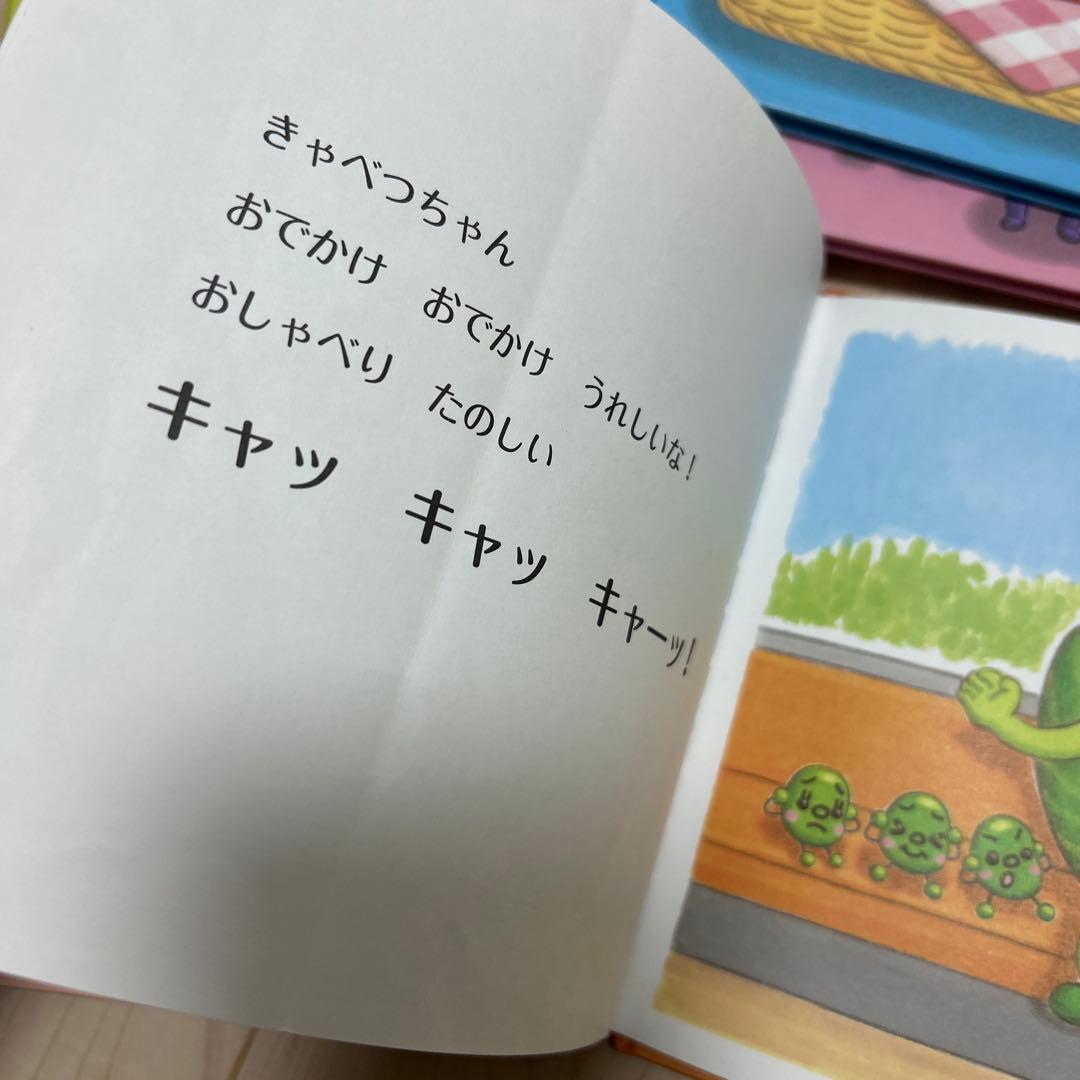 きゃべつちゃん
おでかけ おでかけ うれしいな!
おしゃべり たのしい
キャッ キャッ キャーッ!